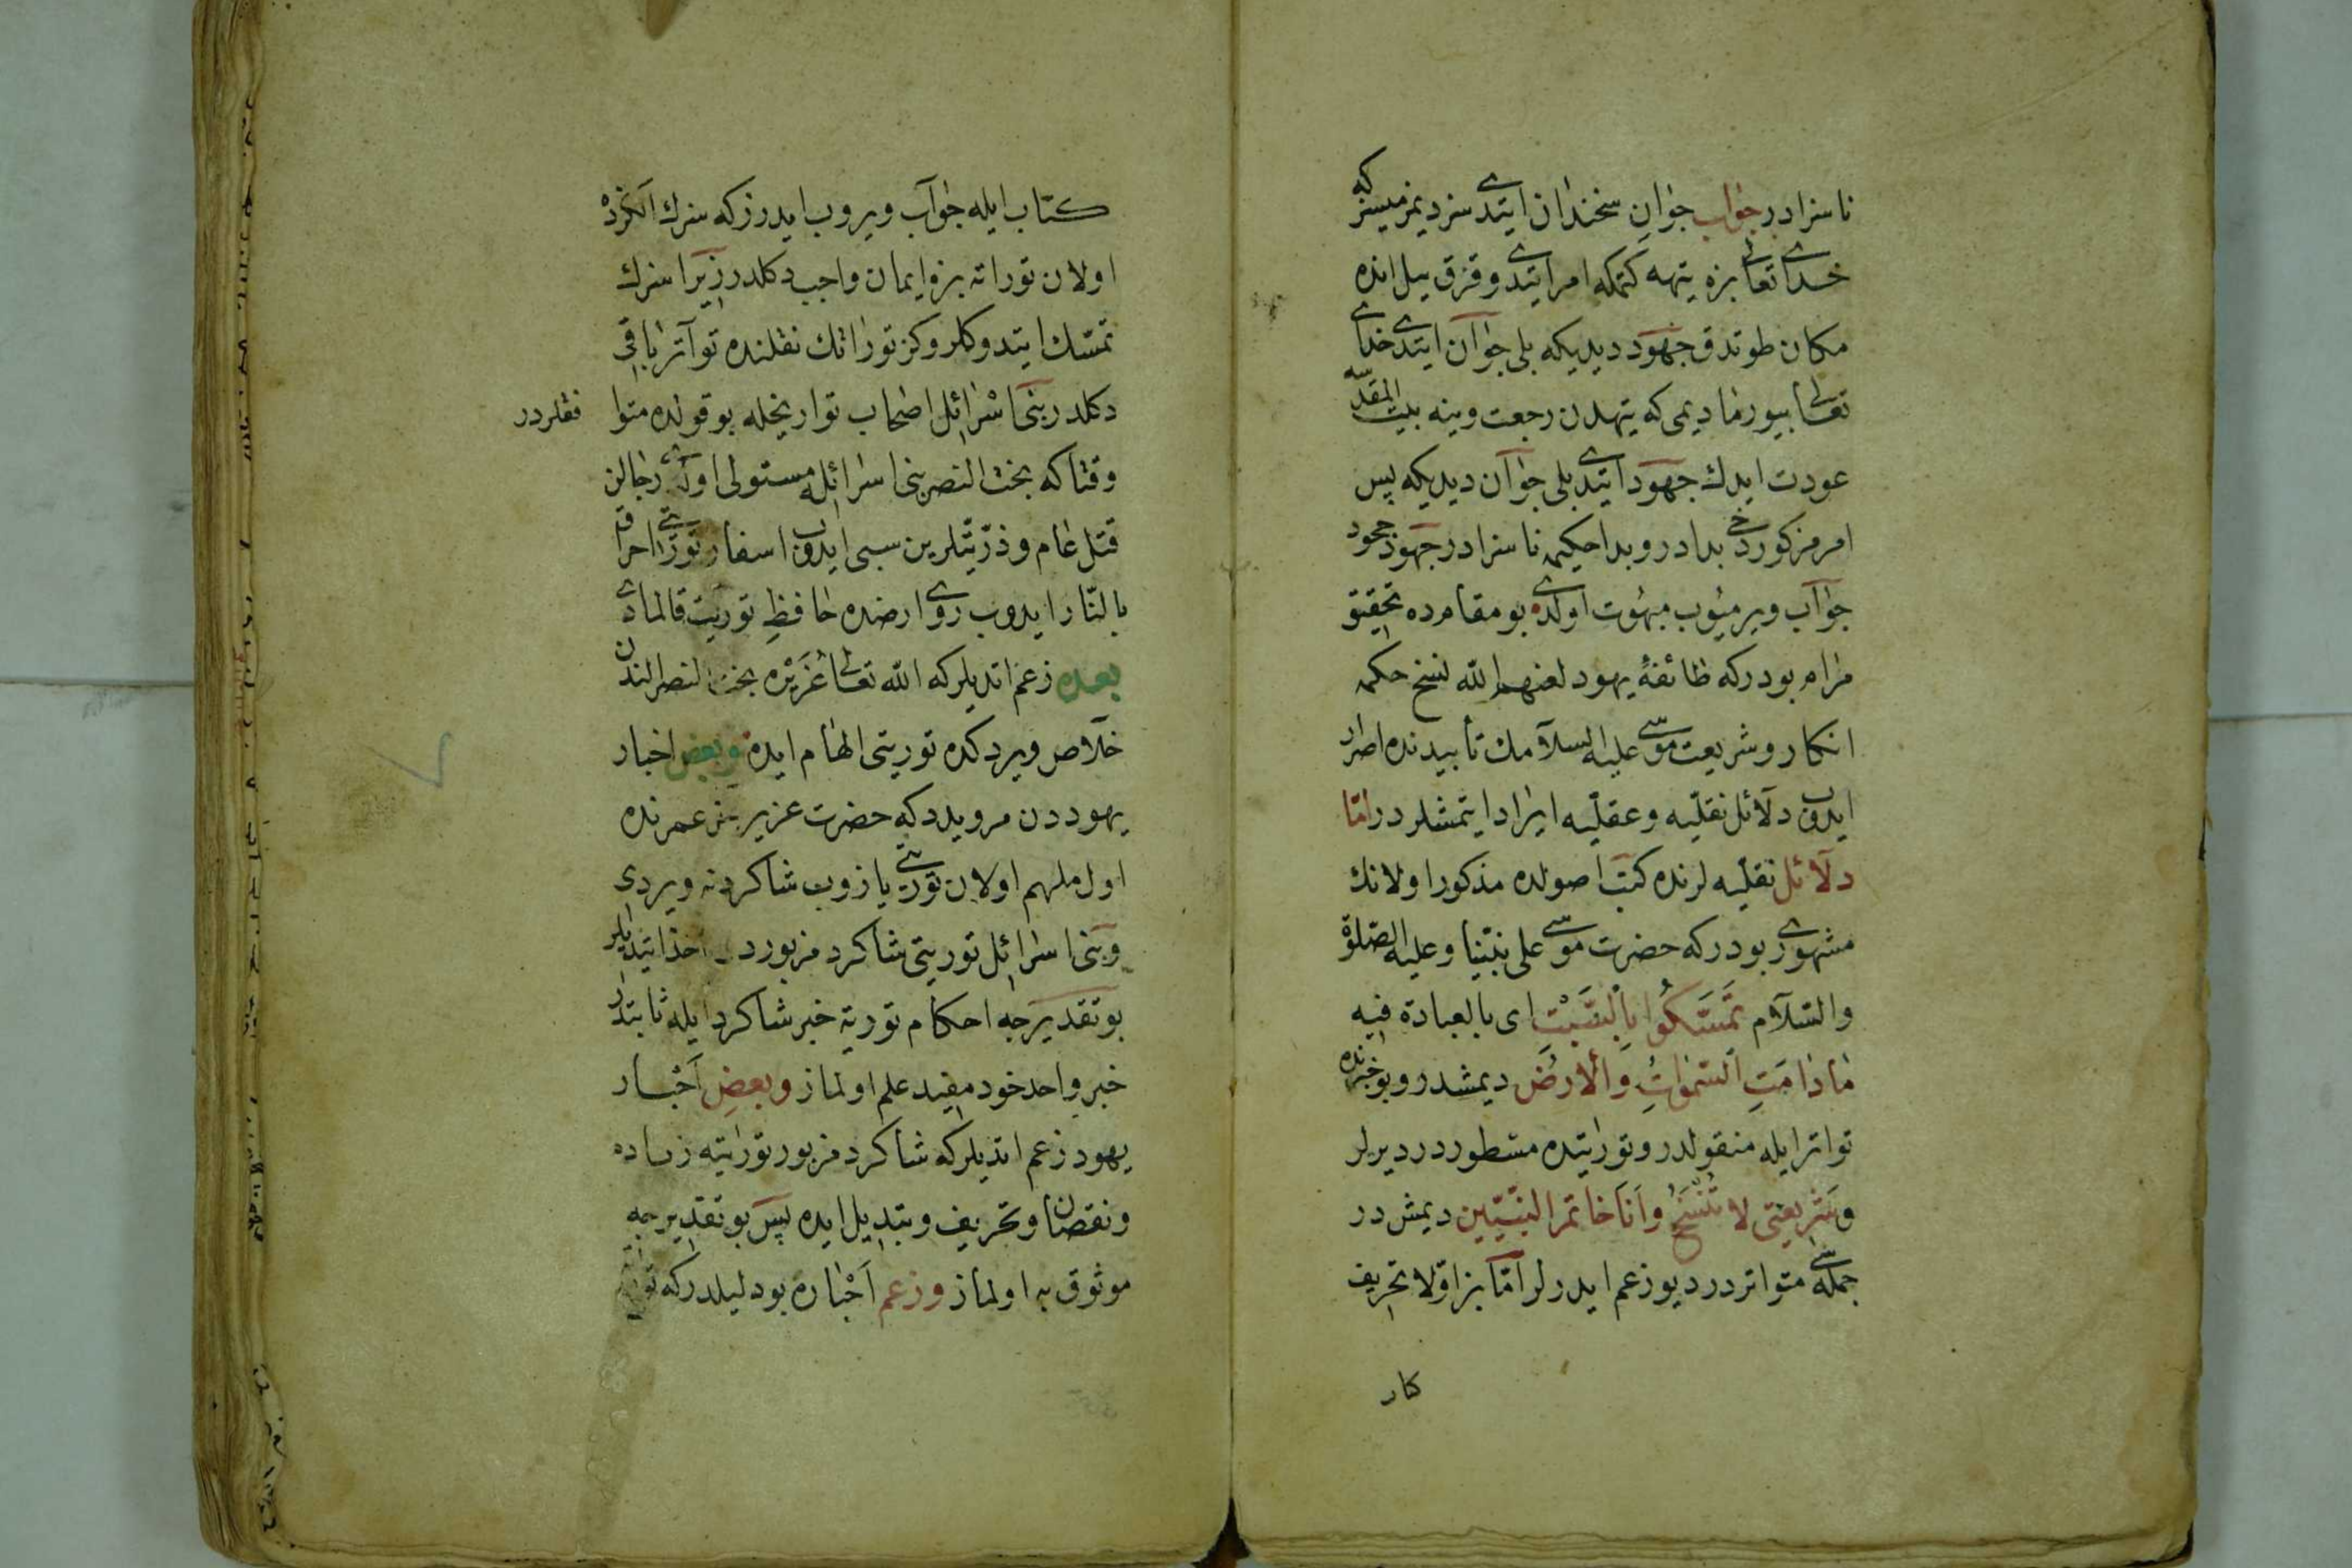 ناسزادر جواب جوان سخندان ایتدی سز دیمزمیسز که
خدای تعالی بزه تیهه کتمکه امر ایتدی وقرق ییل انده
مکان طوتدق جهود دیدیکه بلی جوان ایتدی خدای
تعالی بیورمادیمی که تیهدن رجعت وینه بیت المقدسه
عودت ایدك جهود ایتدی بلی جوان دیدیکه پس
امر مزکور دخی بدادر وبدا حکیمه ناسزادر جهود جحود
جواب ویرمیوب مبهوت اولدی بو مقامده تحقیق
مرام بودرکه طائفۀ یهود لعنهم الله نسخ حکمه
انکار وشریعت موسی علیه السلامك تأبیدنده اصرار
ایدوب دلائل نقلیه وعقلیه ایراد ایتمشلردر اما
دلائل نقلیه لرنده کتب اصولده مذکور اولانك
مشهوری بودرکه حضرت موسی علی نبینا وعلیه الصلوة
والسلام تمسكوا بالسبت ای بالعبادة فیه
مادامت السموات والارض دیمشدر وبو خبرنده
تواتر ایله منقولدر وتوراتیده مسطوردر دیرلر
وشریعتی لا تنسخ وانا خاتم النبیین دیمش در
جمله سی متواتردر دیو زعم ایدرلر اما بز اولا تحریف
کار
کتاب ایله جواب ویروب ایدرزکه سزك الکزده
اولان توراته بزه ایمان واجب دکلدر زیرا سزك
تمسك ایتدوکلروکز توراتك نقلنده تواتر باقی
دکلدر بنی اسرائل اصحاب تواریخله بو قولده متوا
فقلردر
وقتاکه بخت النصر بنی اسرائله مستولی اولدی رجالن
قتل عام وذریتلرین سبی ایدوب اسفار توراتی احراق
بالنار ایدوب روی ارضده حافظ توریت قالمادی
بعده زعم اتدیلرکه الله تعالی عزیره بخت النصر الندن
خلاص ویردکده توریتی الهام ایده وبعض اخبار
یهوددن مرویدرکه حضرت عزیر عمرنده
اول ملهم اولان توریتی یازوب شاکردنه ویردی
وبنی اسرائل توریتی شاکرد مزبوردن اخذ ایتدیلر
بو تقدیرجه احکام توریة خبر شاکرد ایله ثابتدر
خبر واحد خود مفید علم اولماز وبعض احبار
یهود زعم اتدیلرکه شاکرد مزبور توراتیه زیاده
ونقصان وتحریف وتبدیل ایده پس بو تقدیرجه
موثوق به اولماز وزعم احباره بو دلیلدرکه